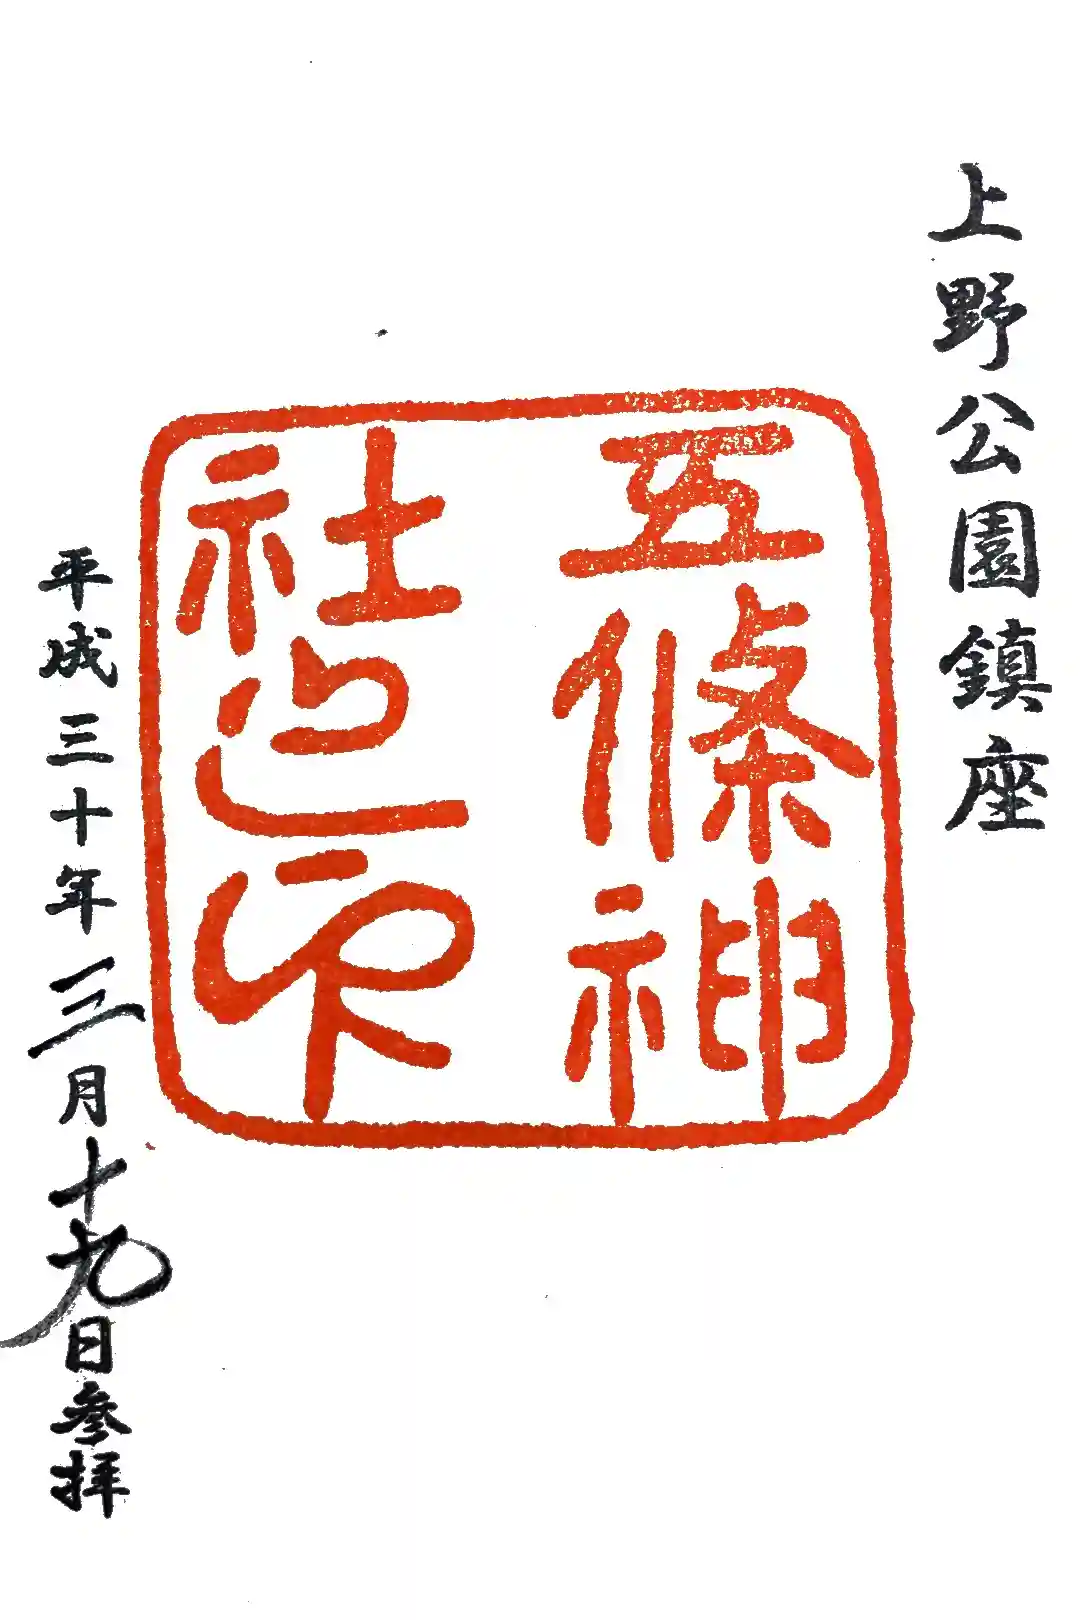 上野公園鎮座
五條神
社之印
平成三十年三月十九日参拝